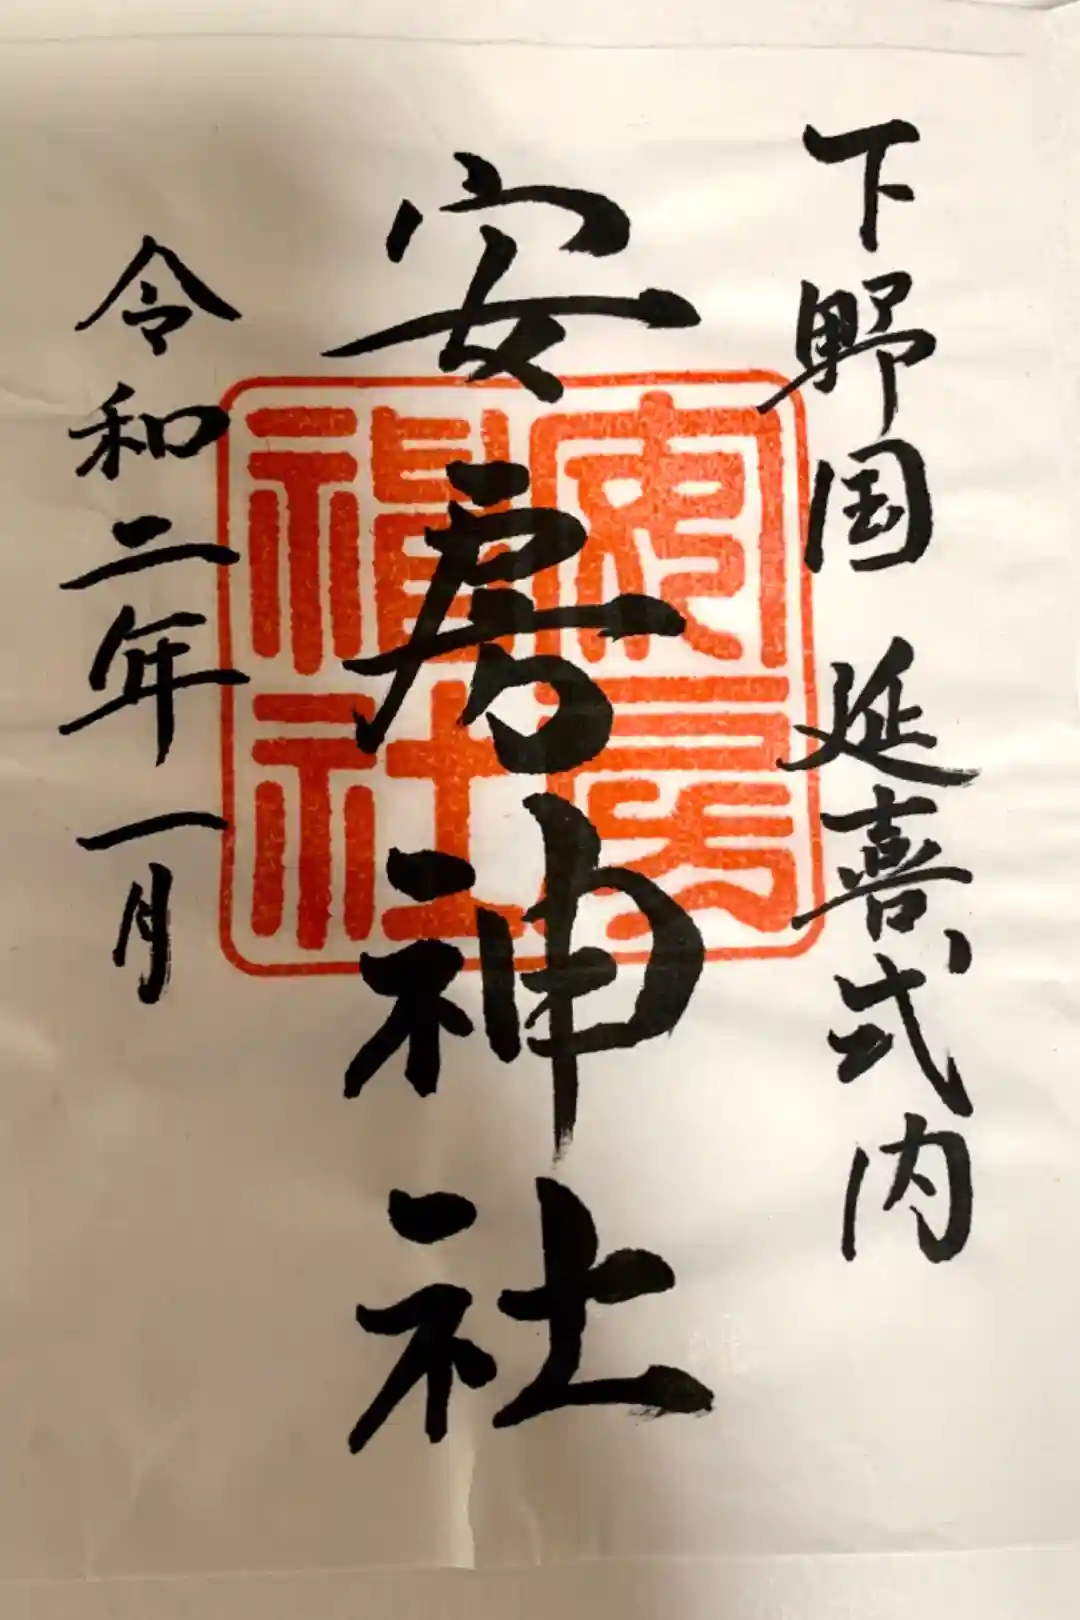 下野国 延喜式内
安房神社
安房神社
令和二年一月